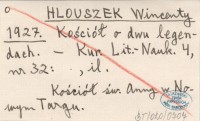 o HŁOUSZEK Wincenty
1927. Kościół o dwu legen-
dach. – Kur. Lit.-Nauk. 4,
nr 32: , il.
Kościół św. Anny w No-
wym Targu.